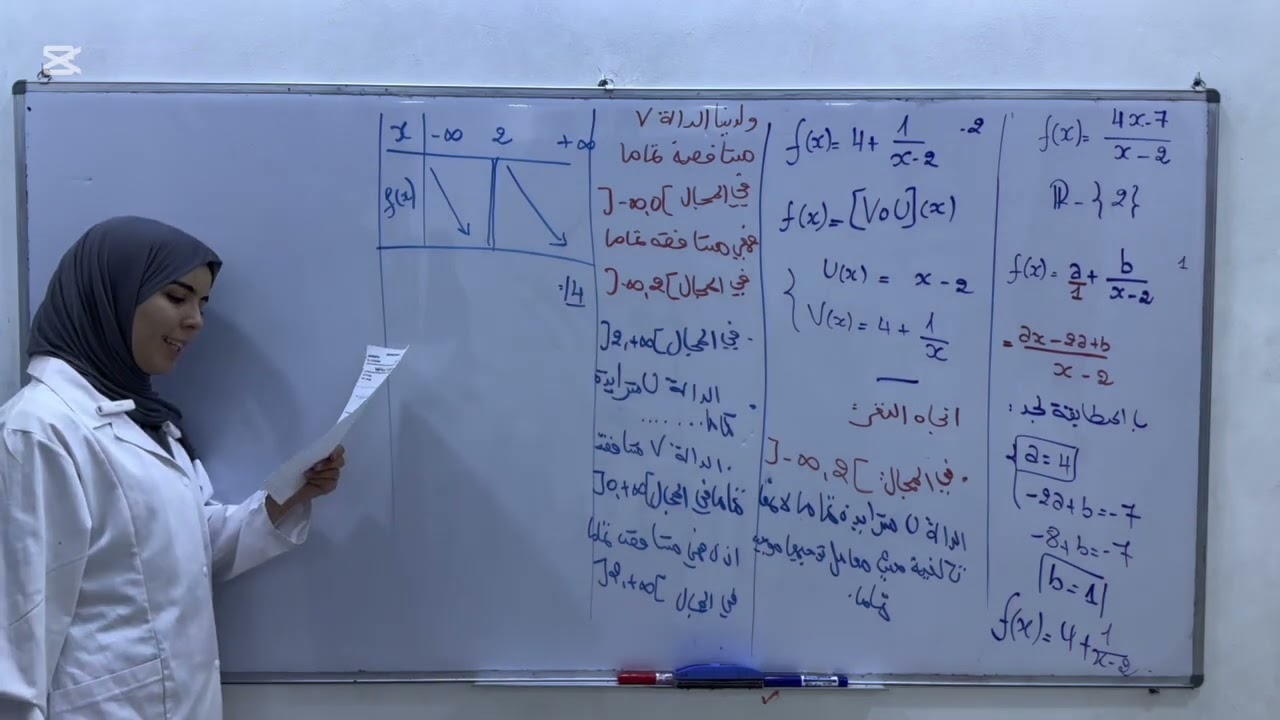 f(x) = \frac{4x-7}{x-2}
ℝ - {2}
f(x) = \frac{a}{1} + \frac{b}{x-2} 1
= \frac{ax-2a+b}{x-2}
بالمطابقة نجد :
a = 4
-2a+b = -7
-8+b = -7
b = 1
f(x) = 4 + \frac{1}{x-2}
f(x) = 4 + \frac{1}{x-2} -2
f(x) = [V∘U](x)
U(x) = x-2
V(x) = 4 + \frac{1}{x}
اتجاه التغير:
• في المجال: ]-∞,2[
الدالة U متزايدة تماما لأنها
تآلفية معامل توجيهها موجب
تماما.
ولدينا الدالة V
متناقصة تماما
في المجال ]-∞,0[
فهي متناقصة تماما
في المجال ]-∞,2[
- في المجال ]2,+∞[
الدالة U متزايدة
تماما ......
. الدالة V متناقصة
تماما في المجال ]0,+∞[
اذن فهي متناقصة تماما
في المجال ]2,+∞[
x -∞ 2 +∞
f(x)
14: